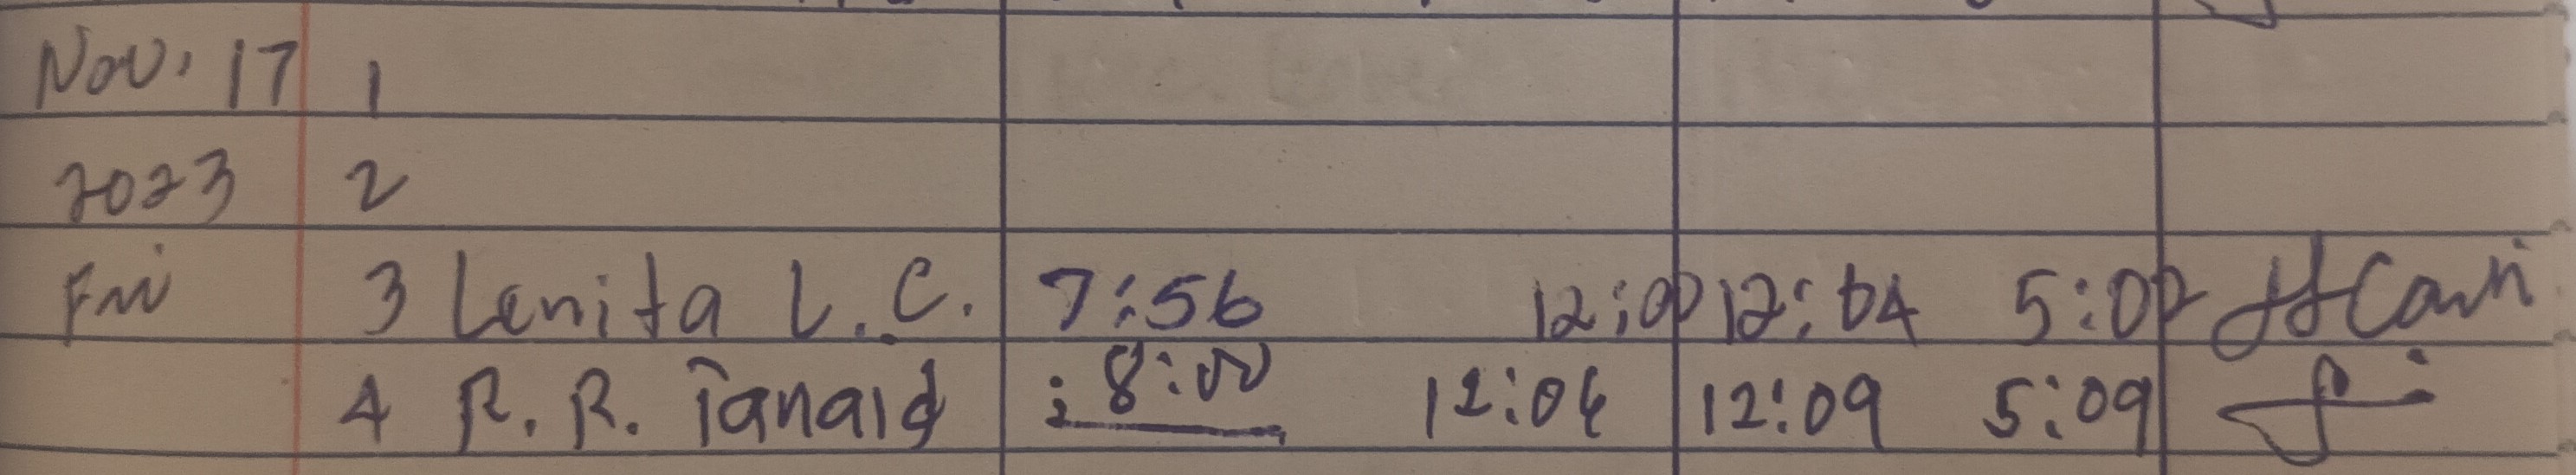 Nov. 17 1
2023 2
Fri 3 Lenita L.C. 7:56 12:00 12:04 5:02
4 R.R. Tanaid 8:00 12:06 12:09 5:09